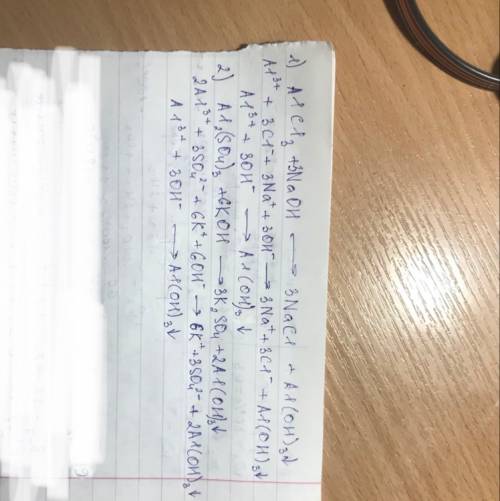 1) AlCl₃ + 3NaOH ⟶ 3NaCl + Al(OH)₃↓
Al³⁺ + 3Cl⁻ + 3Na⁺ + 3OH⁻ ⟶ 3Na⁺ + 3Cl⁻ + Al(OH)₃↓
Al³⁺ + 3OH⁻ ⟶ Al(OH)₃↓
2) Al₂(SO₄)₃ + 6KOH ⟶ 3K₂SO₄ + 2Al(OH)₃↓
2Al³⁺ + 3SO₄²⁻ + 6K⁺ + 6OH⁻ ⟶ 6K⁺ + 3SO₄²⁻ + 2Al(OH)₃↓
Al³⁺ + 3OH⁻ ⟶ Al(OH)₃↓